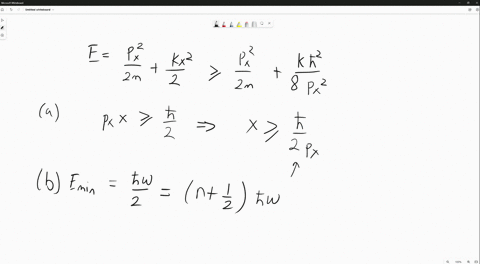 Microsoft Whiteboard
Untitled whiteboard
E = Px²/2m + Kx²/2 ⩾ Px²/2m + Kħ²/8Px²
(a) Px x ⩾ ħ/2 ⇒ x ⩾ ħ/2Px
↑
(b) Emin = ħw/2 = (n+1/2) ħw